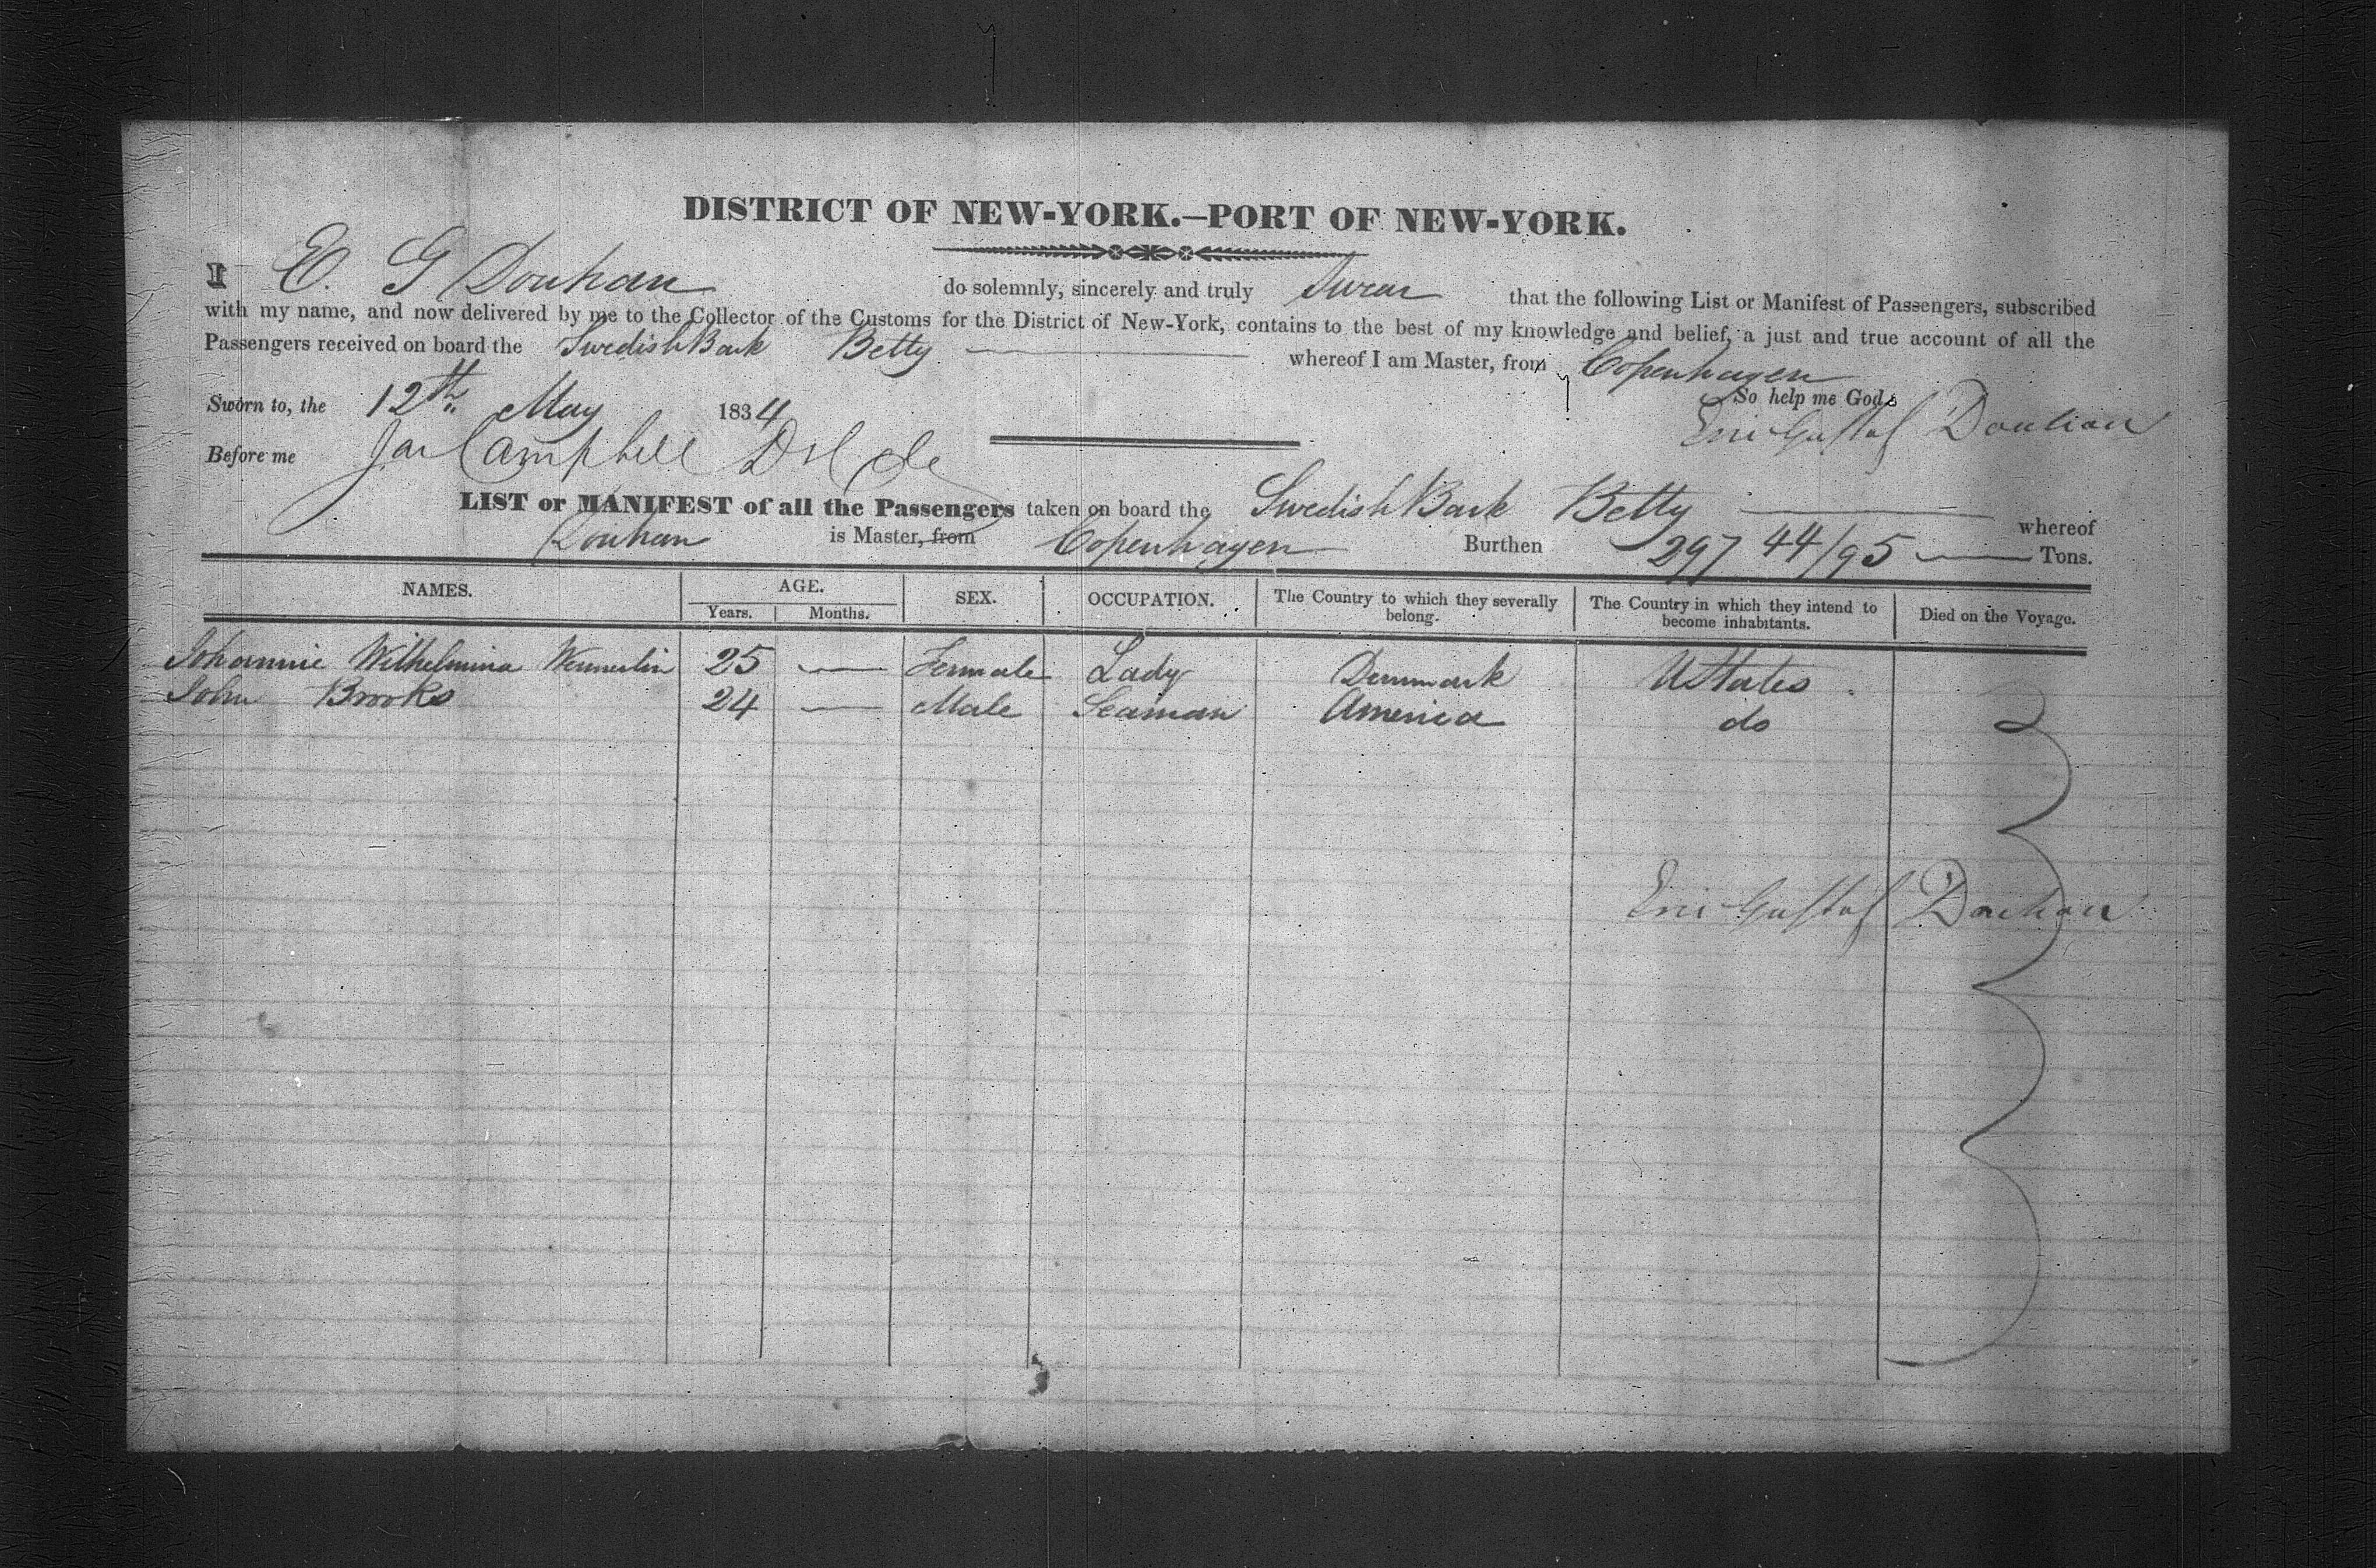 DISTRICT OF NEW-YORK.—PORT OF NEW-YORK.
I E. G Douhan do solemnly, sincerely and truly Swear that the following List or Manifest of Passengers, subscribed
with my name, and now delivered by me to the Collector of the Customs for the District of New-York, contains to the best of my knowledge and belief, a just and true account of all the
Passengers received on board the Swedish Bark Betty whereof I am Master, from Copenhagen
So help me God.
Sworn to, the 12th May 1834
Eric Gustaf Douhan
Before me Jas Campbell
LIST or MANIFEST of all the Passengers taken on board the Swedish Bark Betty whereof
Douhan is Master, from Copenhagen Burthen 297 44/95 Tons.
NAMES. AGE. SEX. OCCUPATION. The Country to which they severally belong. The Country in which they intend to become inhabitants. Died on the Voyage.
Years. Months.
Johannie Wilhelmina 25 — Female Lady Denmark U States
John Brooks 24 — Male Seaman America do
Eric Gustaf Douhan